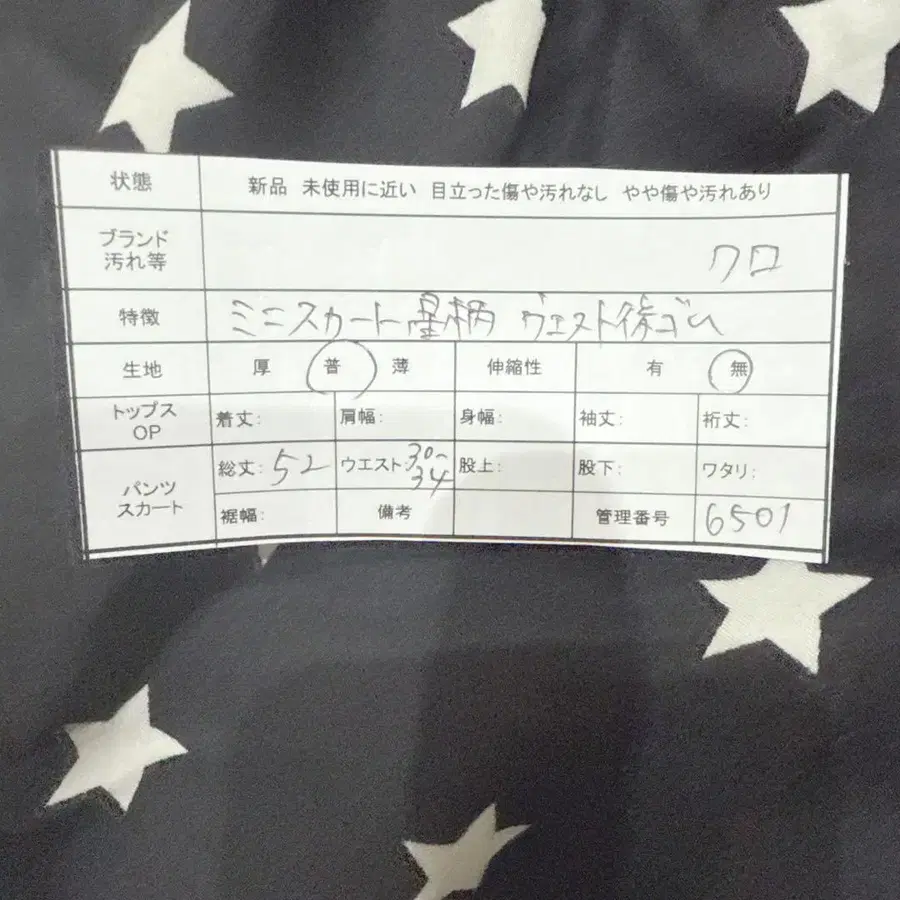 状態 新品 未使用に近い 目立った傷や汚れなし やや傷や汚れあり
ブランド
汚れ等 クロ
特徴 ミニスカート星柄 ウエスト後ゴム
生地 厚 普 薄 伸縮性 有 無
トップス
OP 着丈: 肩幅: 身幅: 袖丈: 裄丈:
パンツ
スカート 総丈: 52 ウエスト: 30~34 股上: 股下: ワタリ:
裾幅: 備考 管理番号 6501